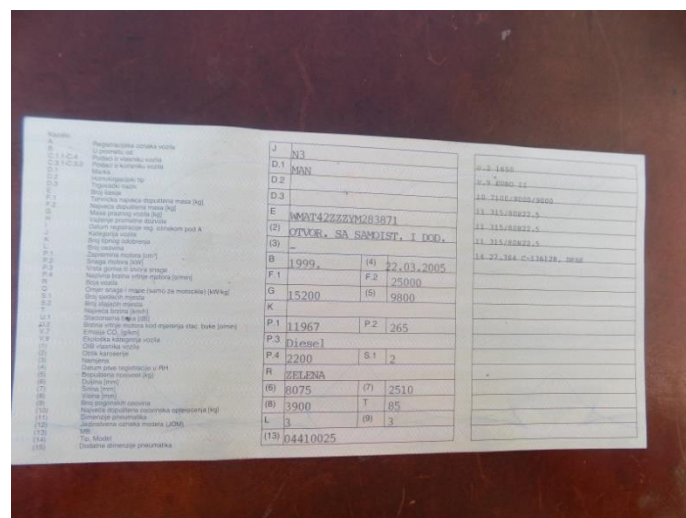 A Registracijska oznaka vozila
B U prometu od
C.1.1-C.4 Podaci o vlasniku vozila
Podaci o korisniku vozila
D.1 Marka
D.2 Homologacijski tip
D.3 Trgovački naziv
E Broj šasije
F.1 Tehnička najveća dopuštena masa [kg]
F.2 Najveća dopuštena masa [kg]
G Masa praznog vozila [kg]
H Važenje prometne dozvole
I Datum registracije reg. oznakom pod A
J Kategorija vozila
K Broj tipnog odobrenja
L Broj osovina
P.1 Zapremina motora [cm³]
P.2 Snaga motora [kW]
P.3 Vrsta goriva ili izvora snage
P.4 Nazivna brzina vrtnje motora [o/min]
R Boja vozila
Q Omjer snage i mase (samo za motocikle) [kW/kg]
S.1 Broj sjedećih mjesta
S.2 Broj stajaćih mjesta
T Najveća brzina [km/h]
U.1 Stacionarna buka [dB]
U.2 Brzina vrtnje motora kod mjerenja stac. buke [o/min]
V.7 Emisija CO₂ [g/km]
V.9 Ekološka kategorija vozila
(1) OIB vlasnika vozila
(2) Oblik karoserije
(3) Namjena
(4) Datum prve registracije u RH
(5) Dopuštena nosivost [kg]
(6) Duljina [mm]
(7) Širina [mm]
(8) Visina [mm]
(9) Broj pogonskih osovina
(10) Najveće dopuštena osovinska opterećenja [kg]
(11) Dimenzije pneumatika
(12) Jedinstvena oznaka modela (JOM)
(13) MB
(14) Tip, Model
(15) Dodatne dimenzije pneumatika
J N3
D.1 MAN
D.2
D.3
E WMAT42ZZZYM283871
(2) OTVOR. SA SAMOIST. I DOD.
(3) -
B 1999. (4) 22.03.2005
F.1 F.2 25000
G 15200 (5) 9800
K
P.1 11967 P.2 265
P.3 Diesel
P.4 2200 S.1 2
R ZELENA
(6) 8075 (7) 2510
(8) 3900 T 85
L 3 (9) 3
(13) 04410025
U.2 1650
V.9 EURO II
10 7100/9000/9000
11 315/80R22.5
11 315/80R22.5
11 315/80R22.5